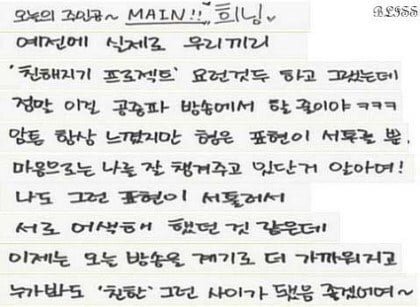 오늘의 주인공~ MAIN!! 희님 BLISS
예전에 실제로 우리끼리
'친해지기 프로젝트' 요런것두 하고 그랬는데
정말 이걸 공중파 방송에서 할 줄이야 ㅋㅋㅋ
암튼 항상 느꼈지만 형은 표현이 서투를 뿐,
마음으로는 나를 잘 챙겨주고 있단거 알아여!
나도 그런 표현이 서툴러서
서로 어색해 했던 것 같은데
이제는 오늘 방송을 계기로 더 가까워지고
누가봐도 '친한' 그런 사이가 됐음 좋겠에여~